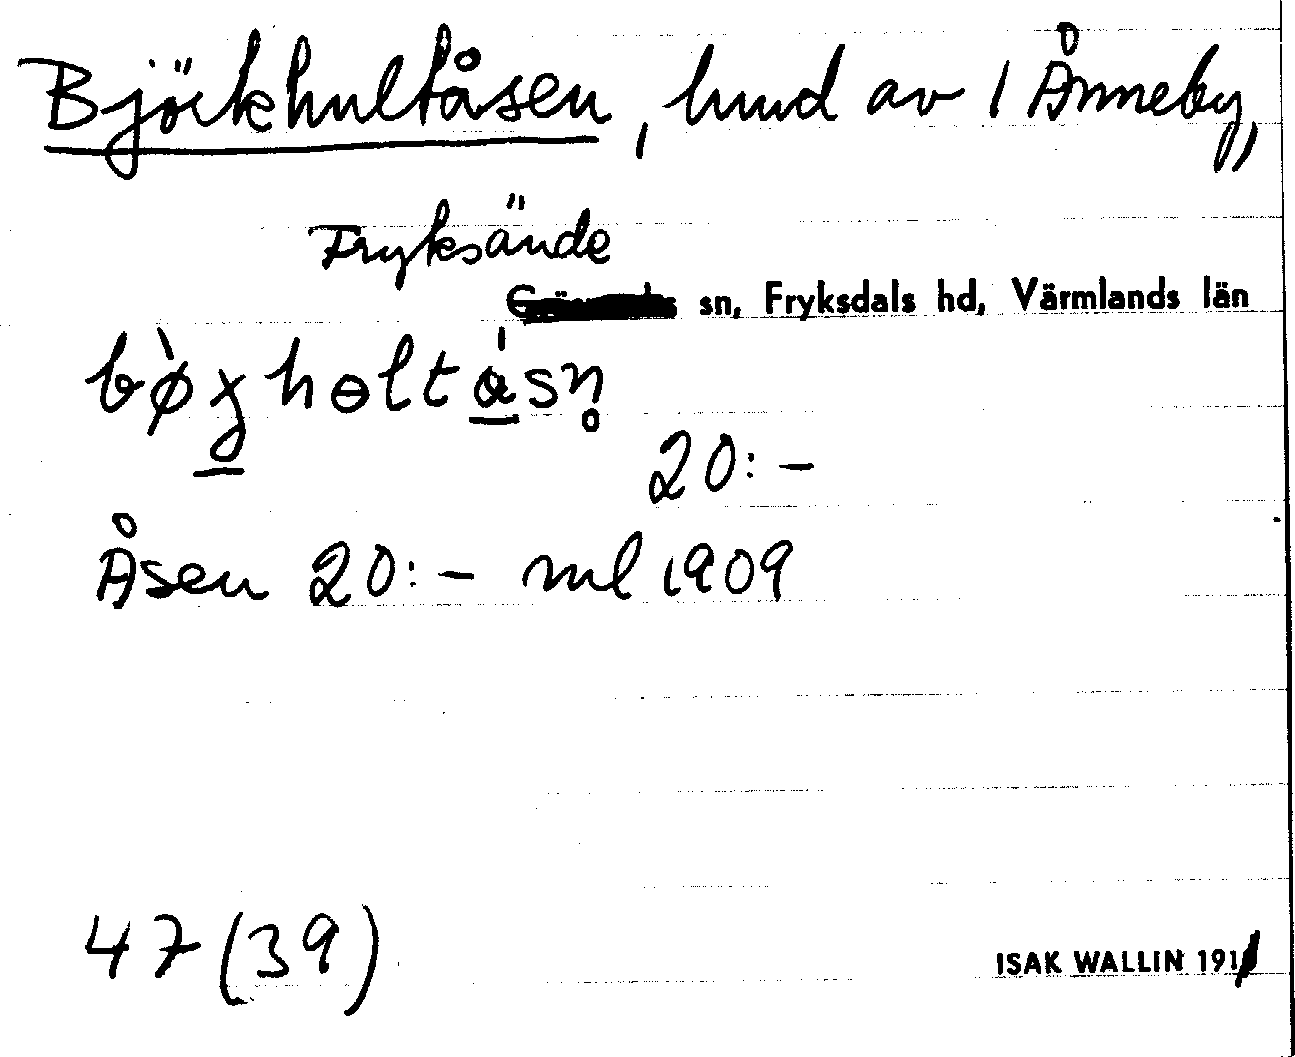 Björkhultåsen, hmd av 1 Ånneby,
Fryksände
sn, Fryksdals hd, Värmlands län
20:-
Åsen 20:- ml 1909
47 (39)
ISAK WALLIN 191